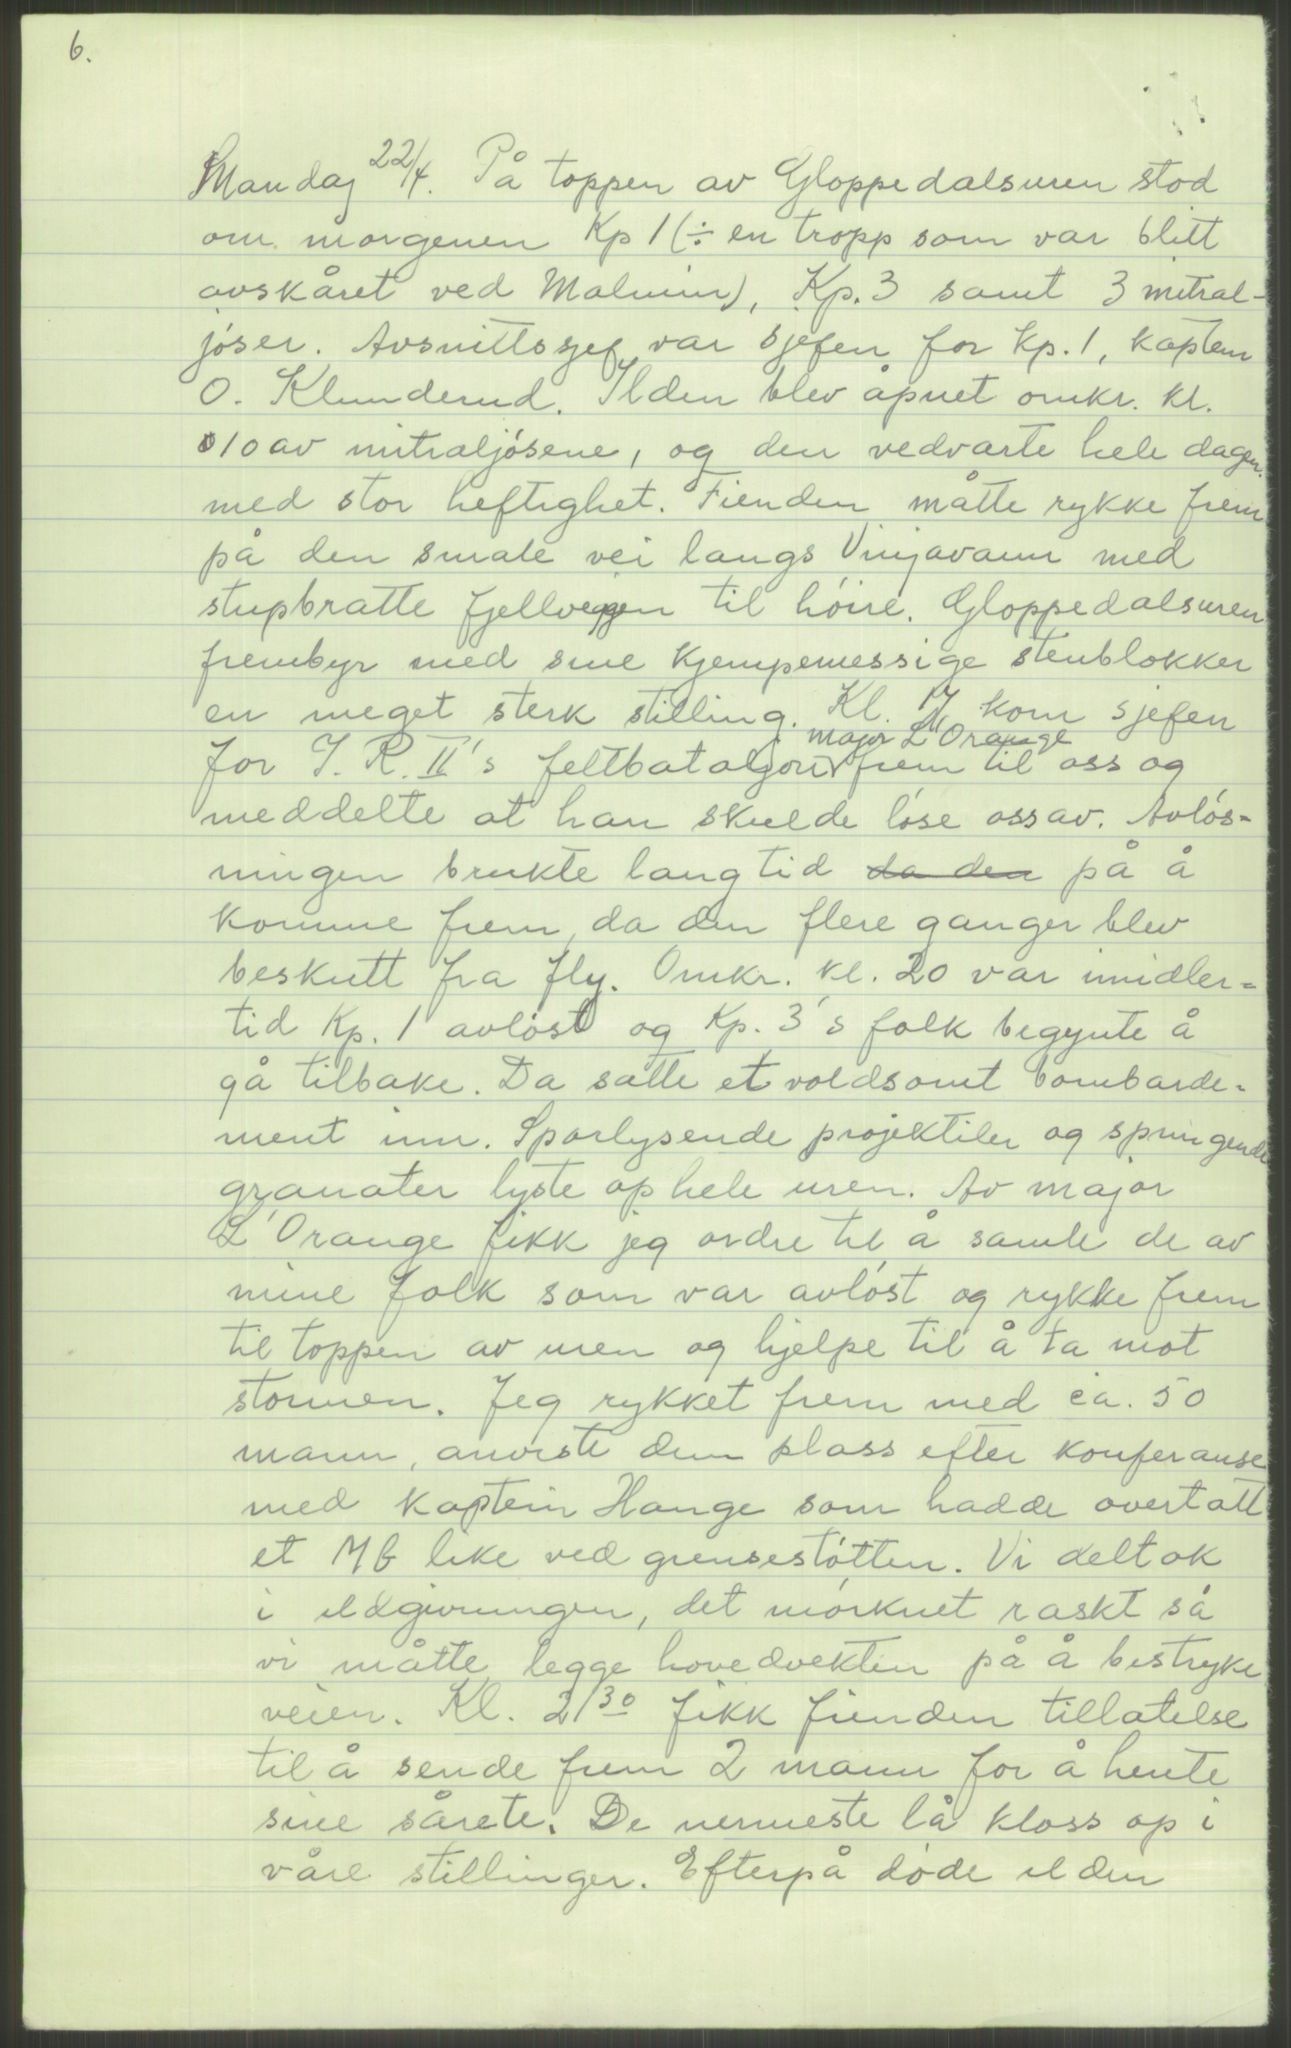 6.
Mandag 22/4. På toppen av Gloppedalsuren stod
om morgenen Kp 1 (÷ en tropp som var blitt
avskåret ved Malmin), Kp. 3 samt 3 mitral-
jøser. Avsnittssjef var sjefen for Kp. 1, kaptein
O. Klunderud. Ilden blev åpnet omkr. kl.
10 av mitraljøsene, og den vedvarte hele dagen
med stor heftighet. Fienden måtte rykke frem
på den smale vei langs Vinjavann med
stupbratte fjellveggen til høire. Gloppedalsuren
frembyr med sine kjempemessige stenblokker
en meget sterk stilling. Kl. 17 kom sjefen
major L'Orange
for I. R. II's feltbataljon frem til oss og
meddelte at han skulde løse oss av. Avløs-
ningen brukte lang tid da den på å
komme frem, da den flere ganger blev
beskutt fra fly. Omkr. kl. 20 var imidler-
tid Kp. 1 avløst og Kp. 3's folk begynte å
gå tilbake. Da satte et voldsomt bombarde-
ment inn. Sporlysende projektiler og springende
granater lyste op hele uren. Av major
L'Orange fikk jeg ordre til å samle de av
mine folk som var avløst og rykke frem
til toppen av uren og hjelpe til å ta mot
stormen. Jeg rykket frem med ca. 50
mann, anviste dem plass efter konferanse
med kaptein Hauge som hadde overtatt
et MG like ved grensestøtten. Vi deltok
i ildgivningen, det mørknet raskt så
vi måtte legge hovedvekten på å bestryke
veien. Kl. 21 30 fikk fienden tillatelse
til å sende frem 2 mann for å hente
sine sårete. De nermeste lå kloss op i
våre stillinger. Efterpå døde ilden